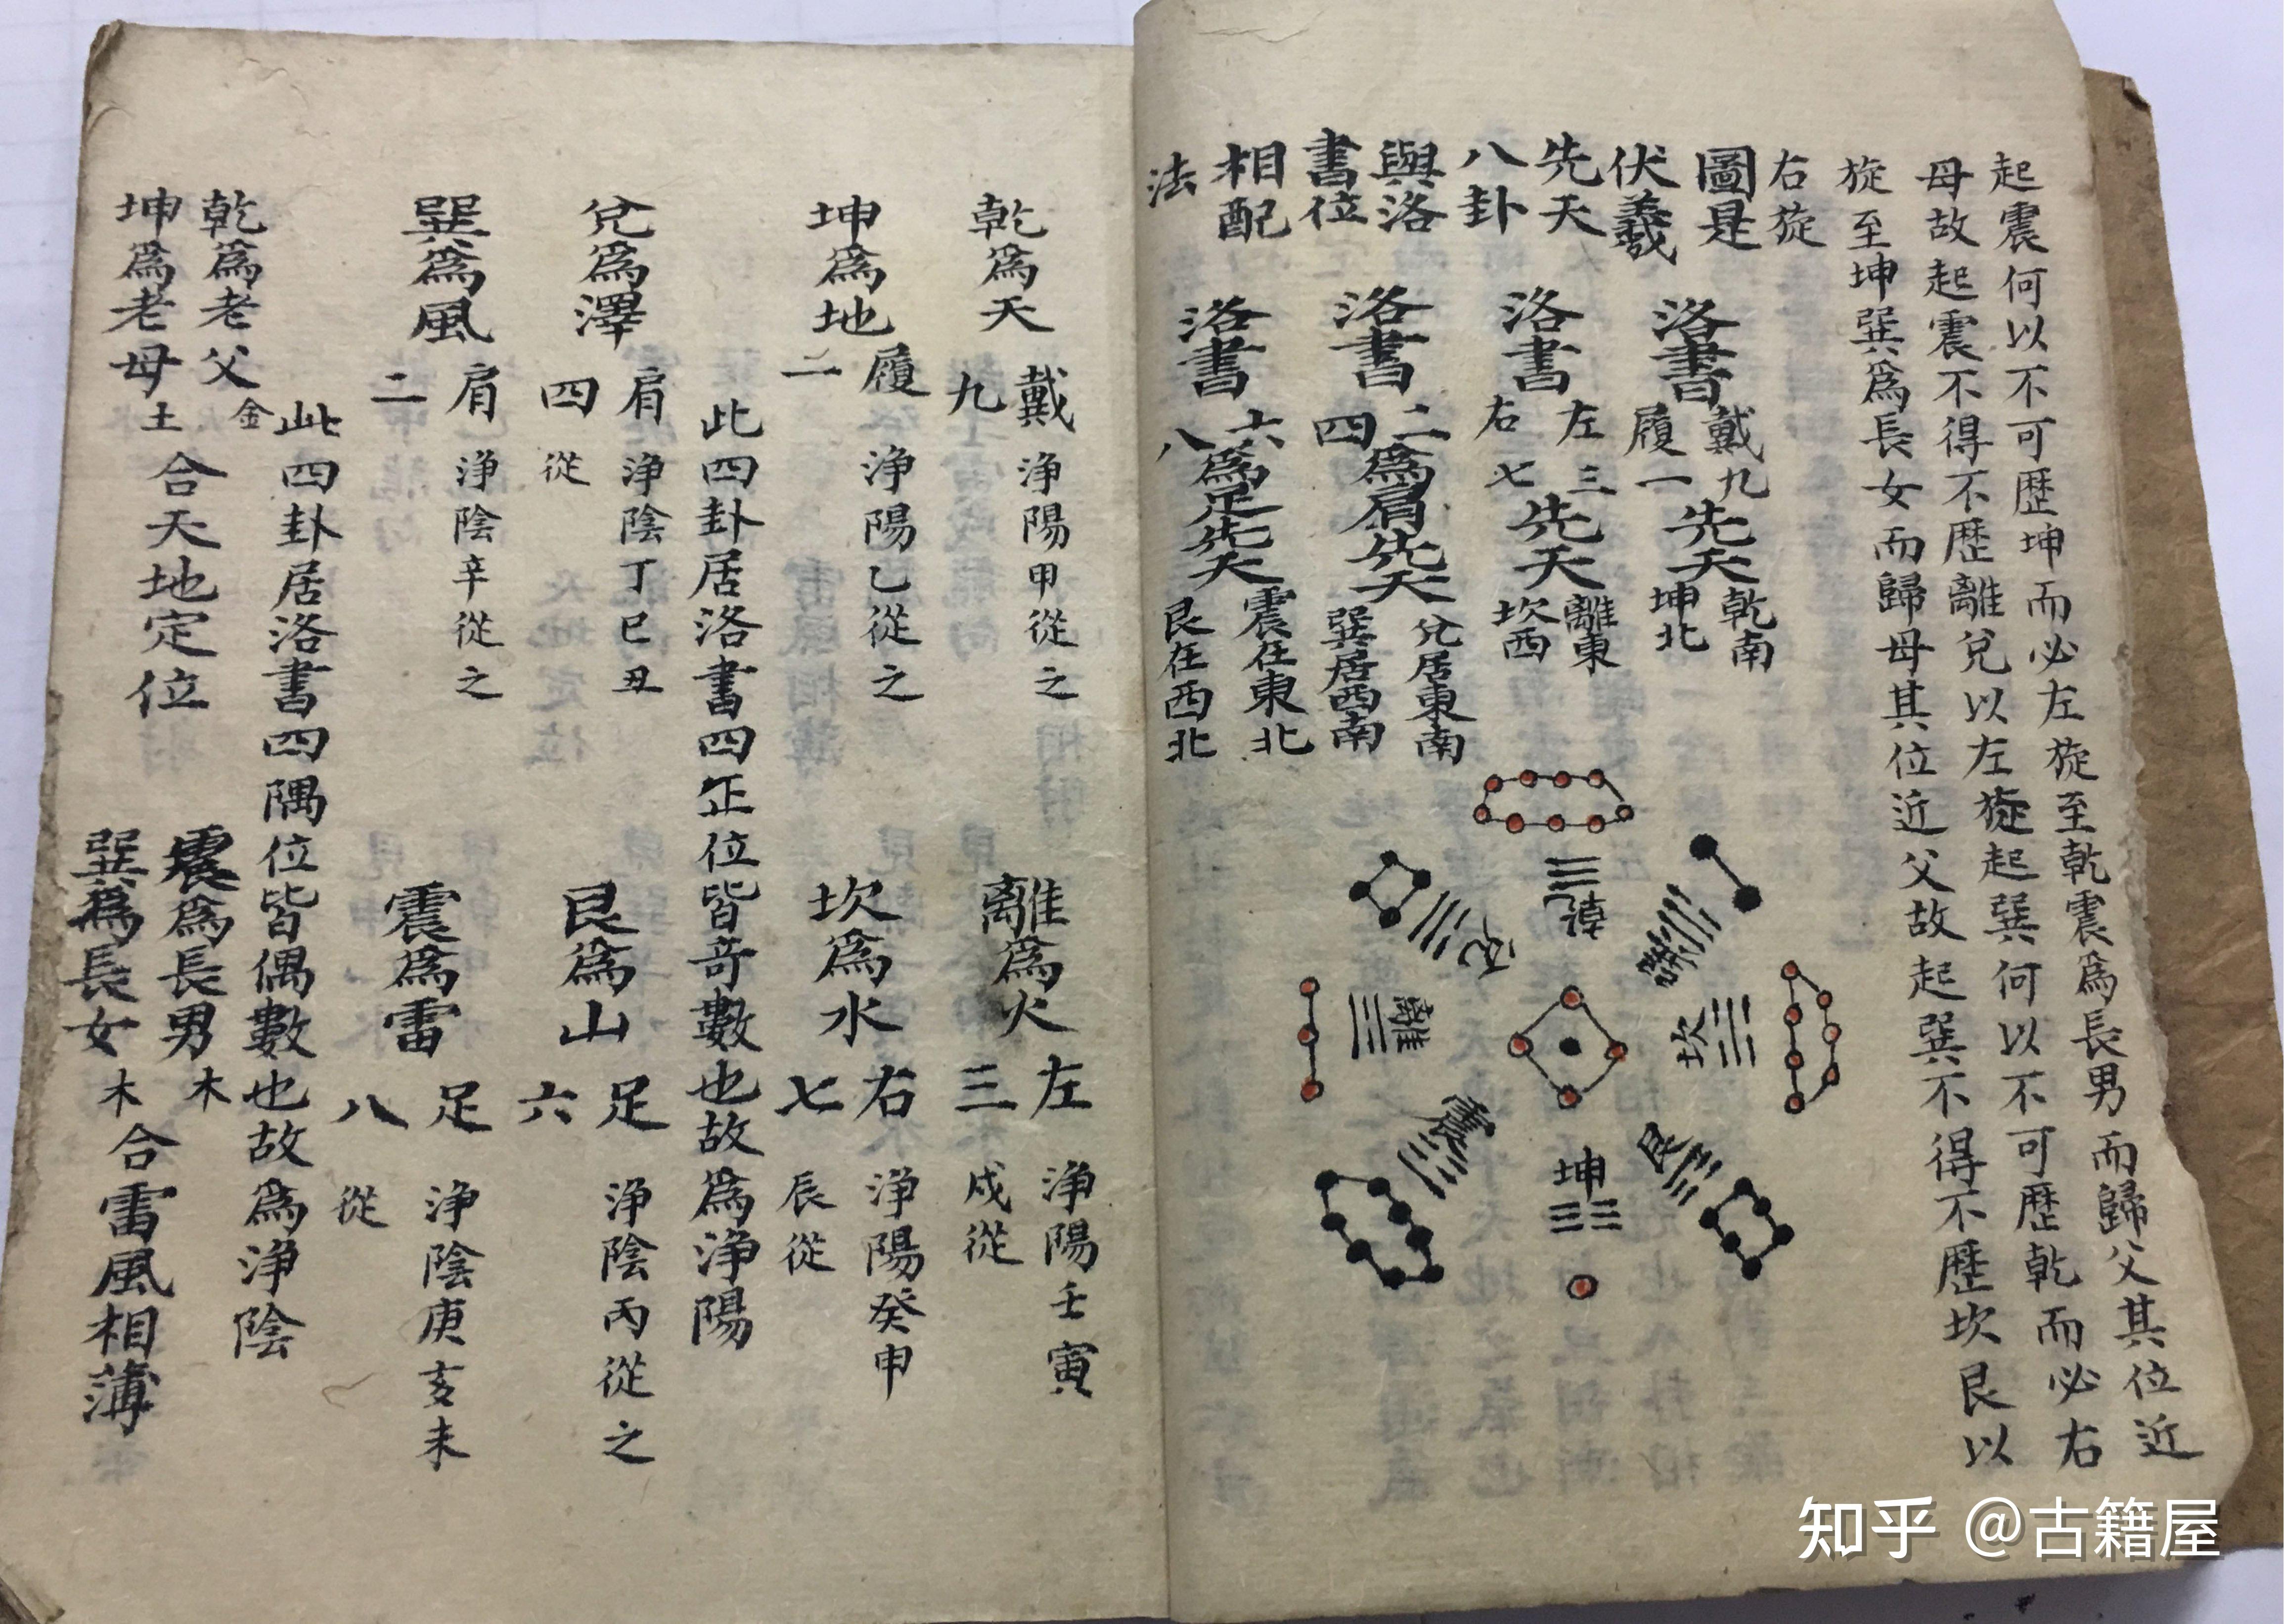 起震何以不可歷坤而必左旋至乾震爲長男而歸父其位近
母故起震不得不歷離兌以左旋起巽何以不可歷乾而必右
旋至坤巽爲長女而歸母其位近父故起巽不得不歷坎艮以
右旋
圖是
伏羲
先天
八卦
與洛
書位
相配
法
洛書
戴九
履一
先天
乾南
坤北
洛書
左三
右七
先天
離東
坎西
洛書
二
四
爲肩先天
兌居東南
巽居西南
洛書
六
八
爲足先天
震在東北
艮在西北
乾
兌
巽
離
坎
震
艮
坤
乾爲天
戴
九
淨陽甲從之
離爲火
左
三
淨陽壬寅
戌從
坤爲地
履
二
淨陽乙從之
坎爲水
右
七
淨陽癸申
辰從
此四卦居洛書四正位皆竒數也故爲淨陽
兌爲澤
肩
四
淨陰丁巳丑
從
艮爲山
足
六
淨陰丙從之
巽爲風
肩
二
淨陰辛從之
震爲雷
足
八
淨陰庚亥未
從
此四卦居洛書四隅位皆偶數也故爲淨陰
乾爲老父金
坤爲老母土
合天地定位
震爲長男木
巽爲長女木
合雷風相薄
知乎 @古籍屋